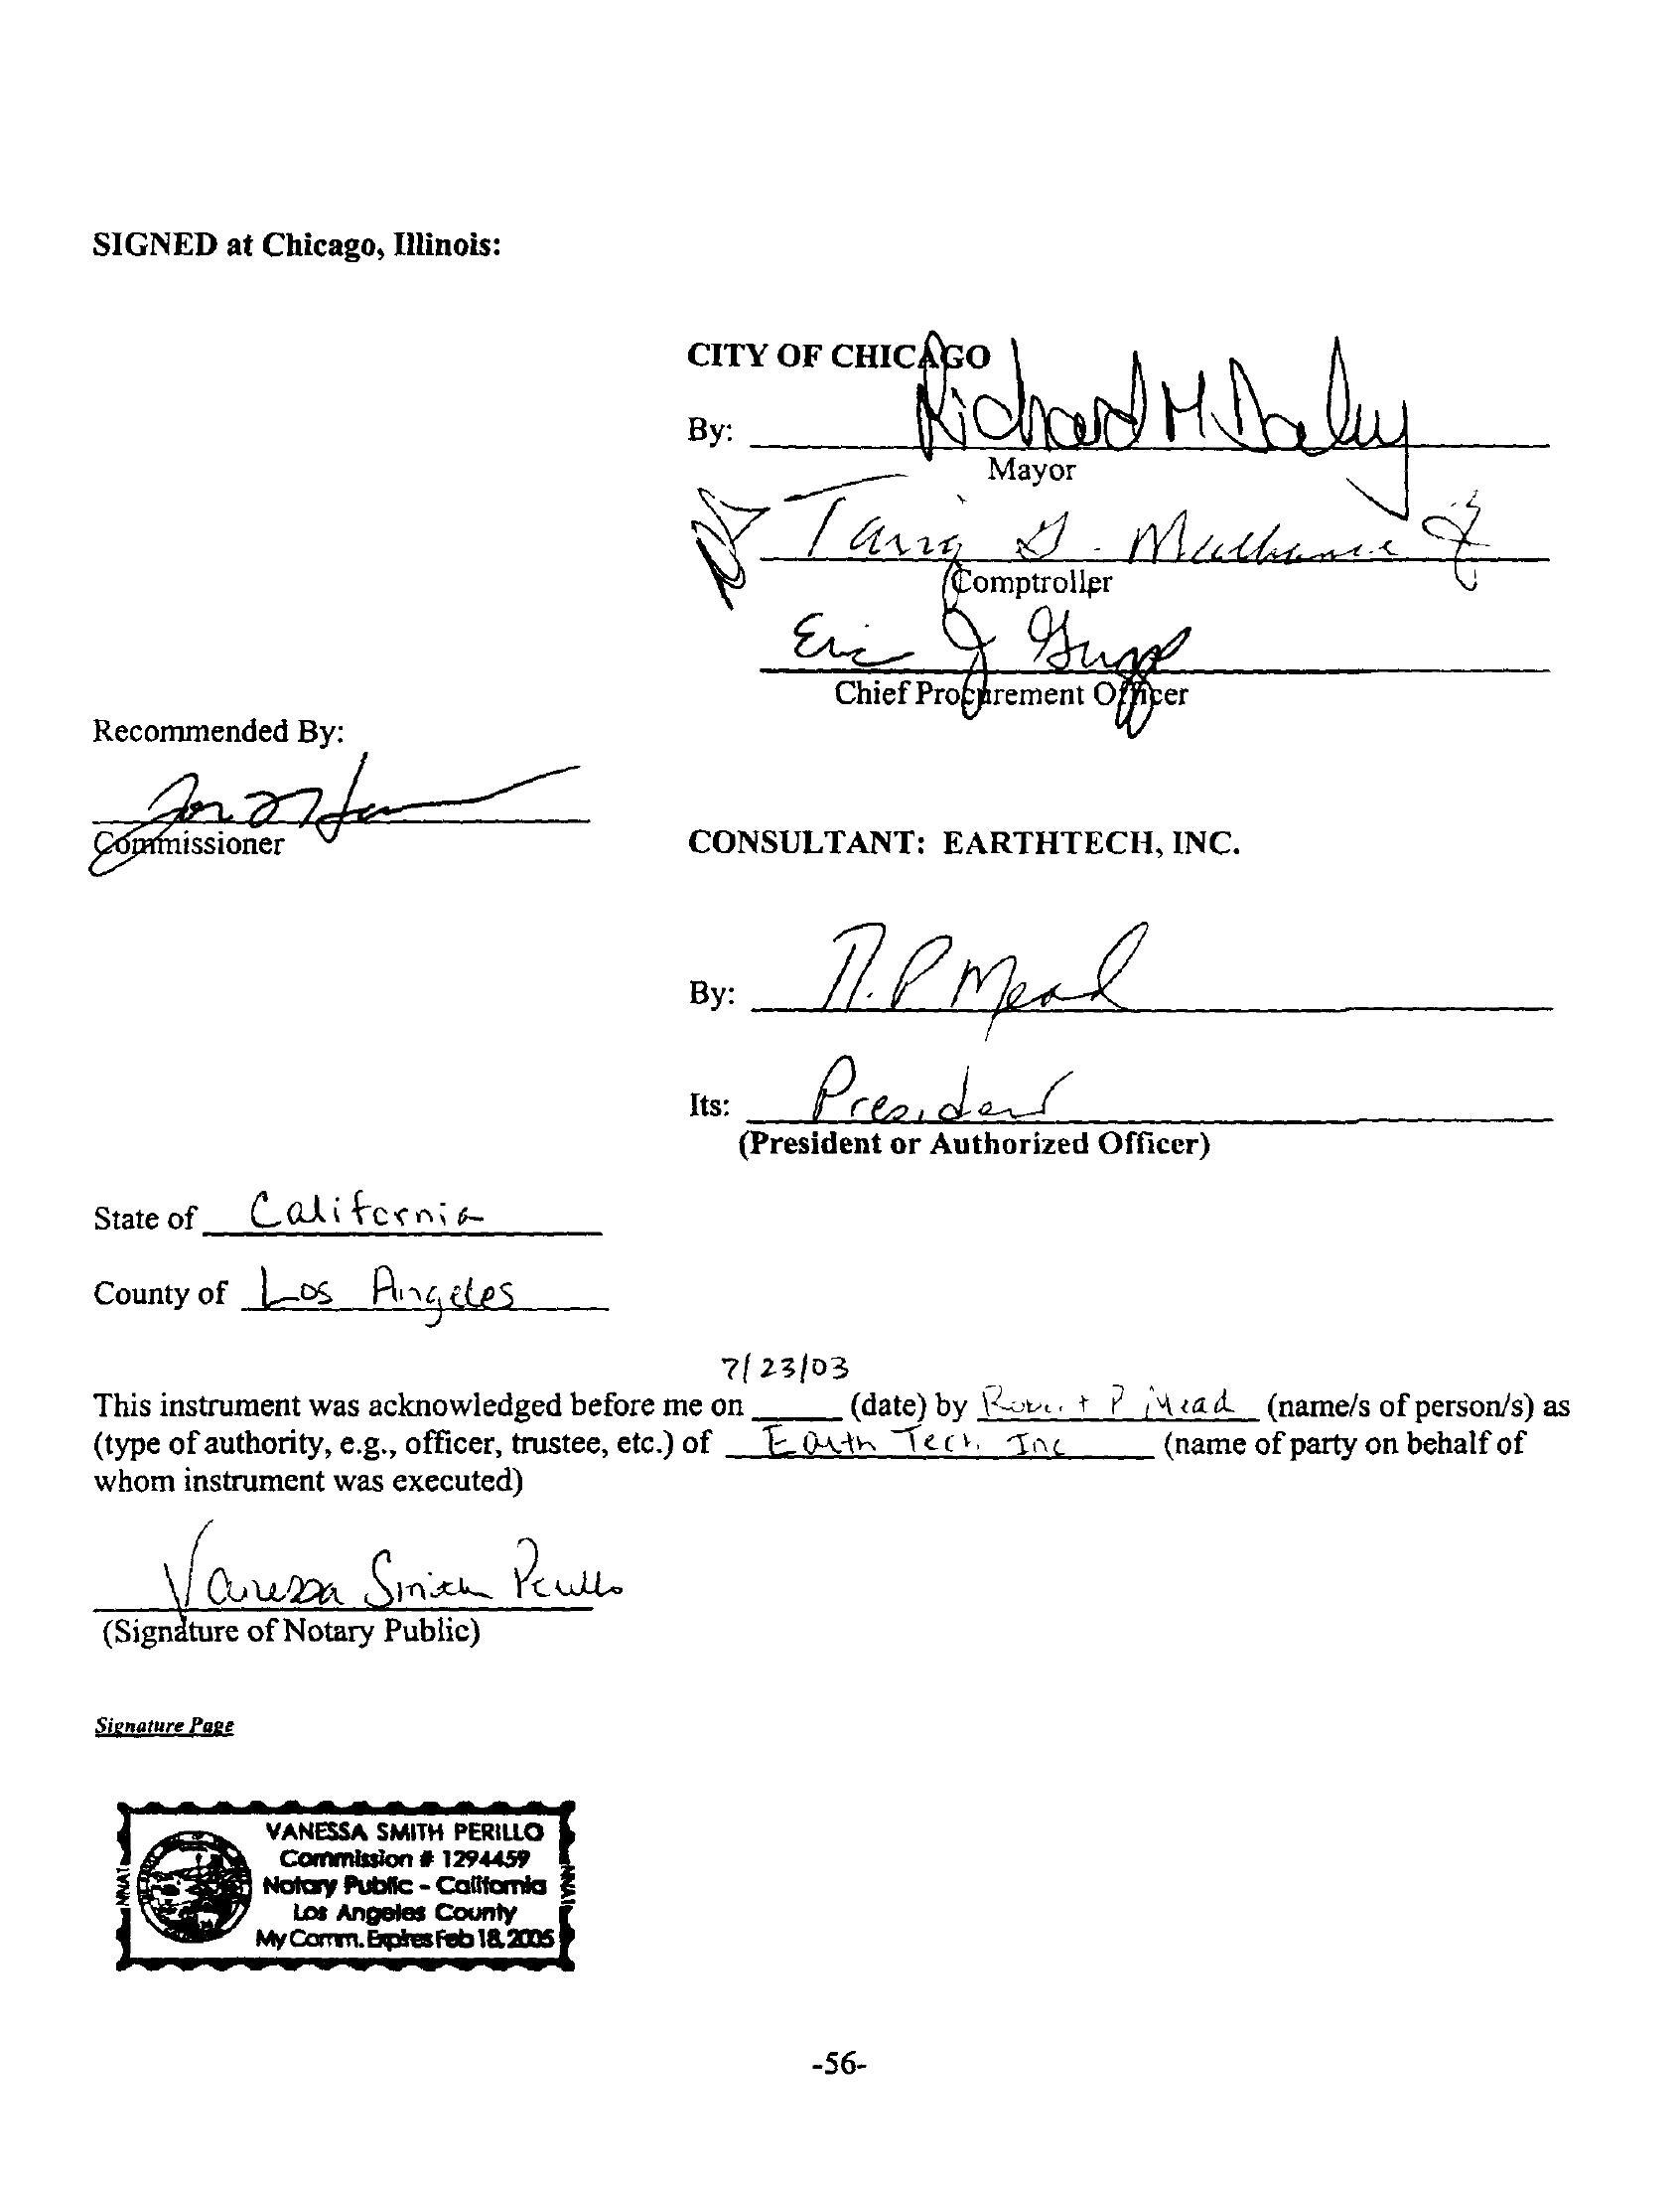 SIGNED at Chicago, Illinois:
CITY OF CHICAGO
By: Richard M. Daley
Mayor
Tariq G. Malhance
Comptroller
Eric J Griggs
Chief Procurement Officer
Recommended By:
Commissioner
CONSULTANT: EARTHTECH, INC.
By: R. P Mead
Its: President
(President or Authorized Officer)
State of California
County of Los Angeles
7/23/03
This instrument was acknowledged before me on _____ (date) by Robert P Mead (name/s of person/s) as
(type of authority, e.g., officer, trustee, etc.) of Earth Tech Inc (name of party on behalf of
whom instrument was executed)
Vanessa Smith Perillo
(Signature of Notary Public)
Signature Page
VANESSA SMITH PERILLO
Commission # 1294459
Notary Public - California
Los Angeles County
My Comm. Expires Feb 18, 2005
NNA1
NNA1
-56-